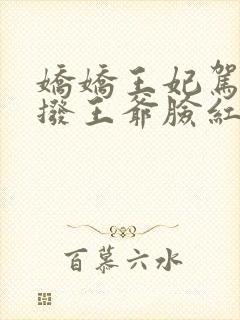 嬌嬌王妃駕
撥王爺臉紅
百慕六水